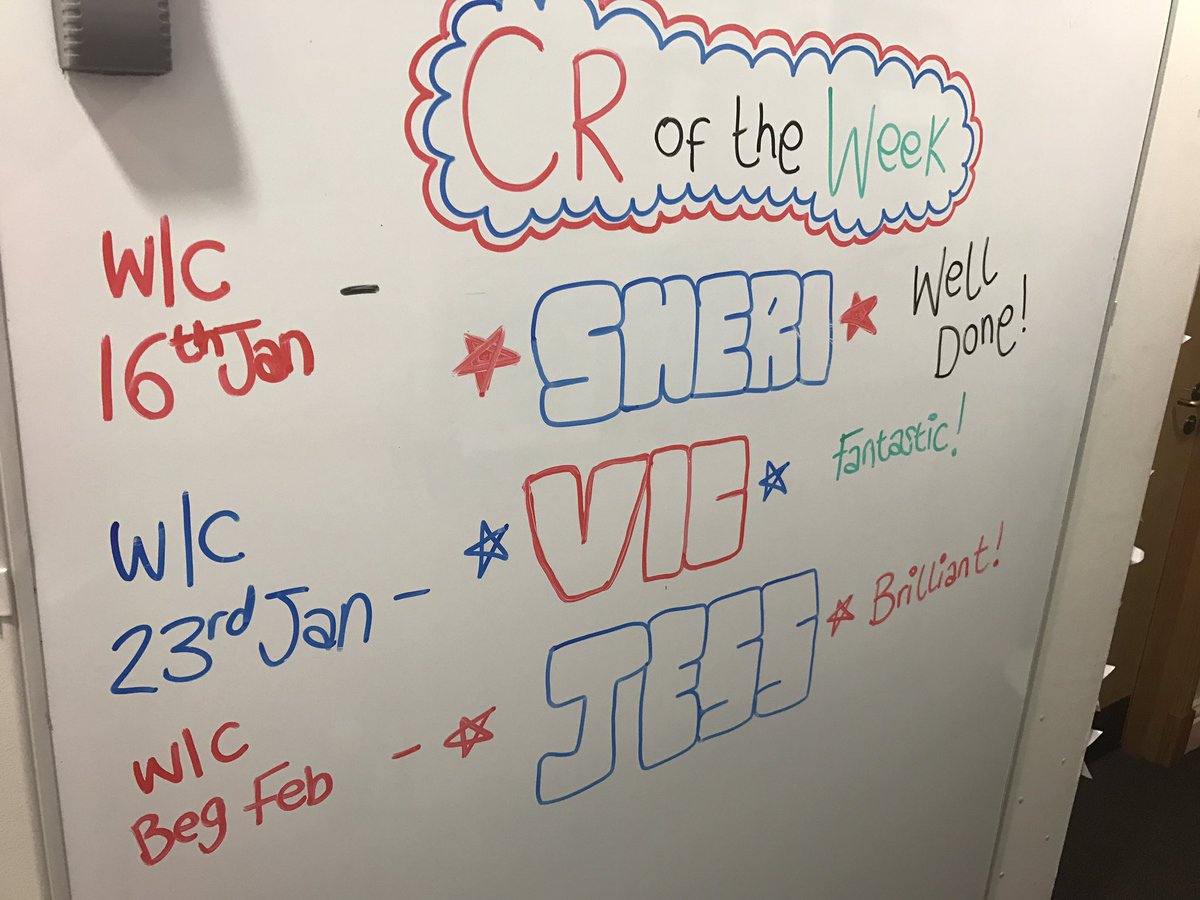 CR of the Week
W/C
16th Jan - SHERI Well Done!
W/C
23rd Jan - VIC Fantastic!
W/C
Beg Feb - JESS Brilliant!